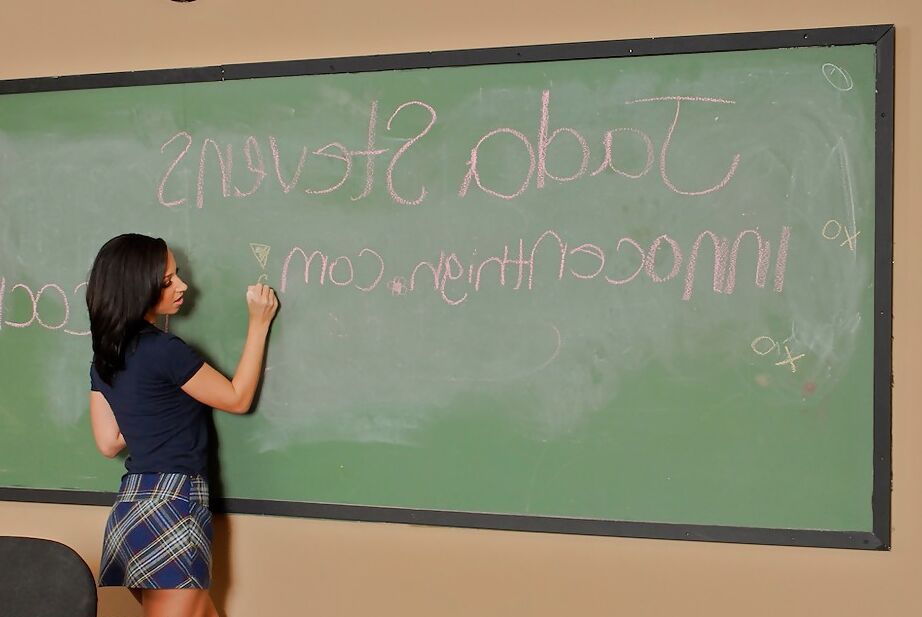 Jada Stevens
Innocenthigh.com
XO
XO